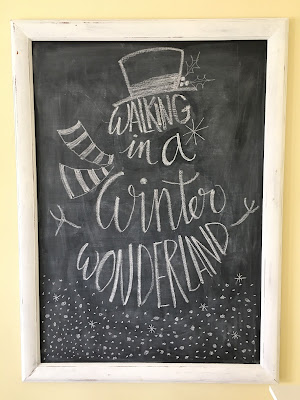 WALKING
in a
Winter
WONDERLAND